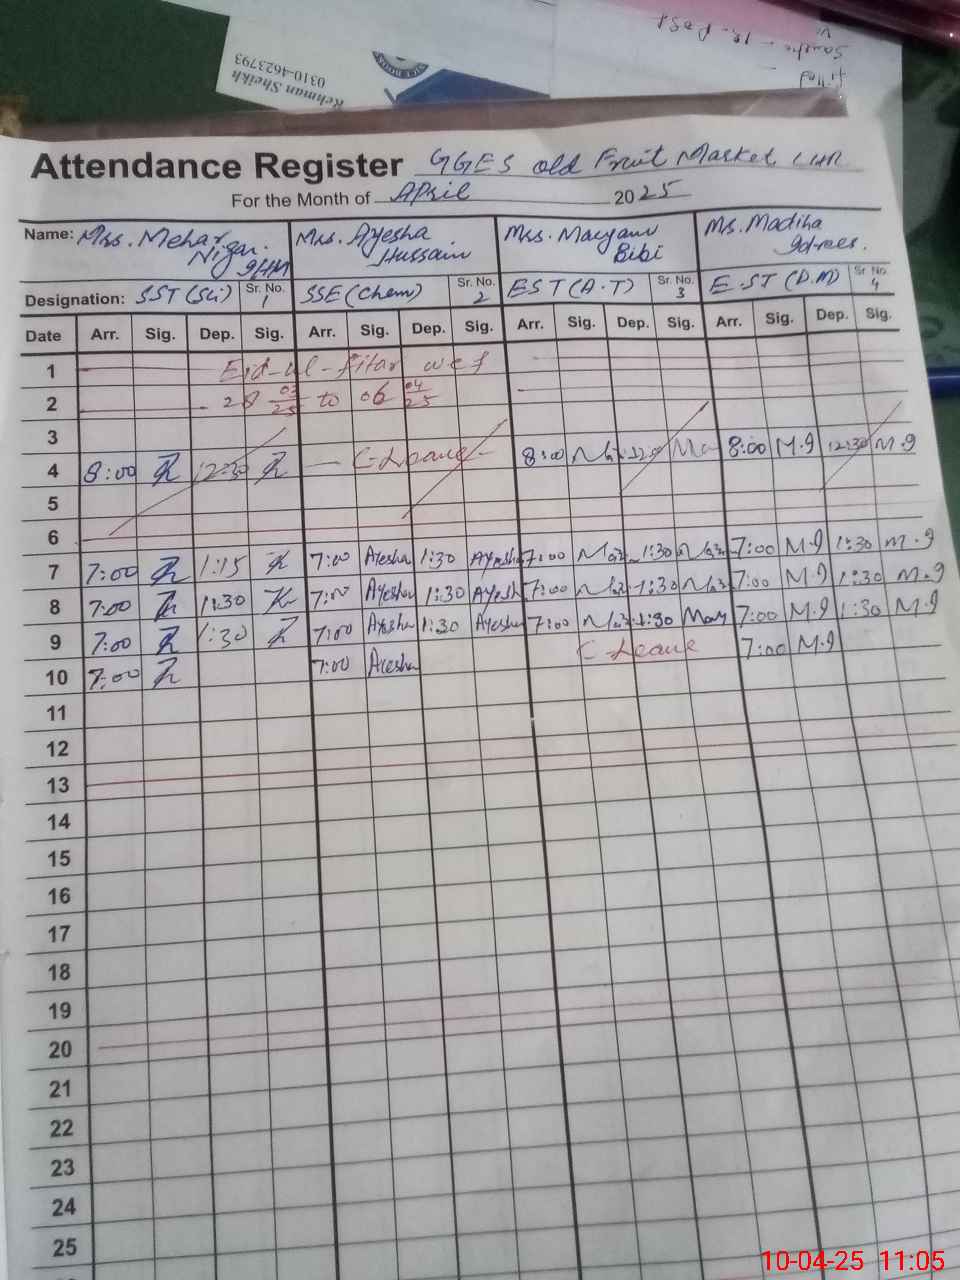 Rehman Sheikh
0310-4623793
Attendance Register GGES old Fruit Market LHR
For the Month of April 2025
Name: Mrs. Mehar Nigar. Mrs. Ayesha Hussain Mrs. Maryam Bibi Ms. Madiha Idrees.
Designation: SST (Sci) Sr. No. 1 SSE (Chem) Sr. No. 2 EST (A.T) Sr. No. 3 E.ST (D.M) Sr. No. 4
Date Arr. Sig. Dep. Sig. Arr. Sig. Dep. Sig. Arr. Sig. Dep. Sig. Arr. Sig. Dep. Sig.
1 Eid-ul-fitar wef
2 28 03/25 to 06 04/25
3
4 8:00 12:30 C-Leave 8:00 8:00 M.I 12:30 M.I
5
6
7 7:00 1:15 7:00 Ayesha 1:30 Ayesha 7:00 1:30 7:00 M.I 1:30 M.I
8 7:00 1:30 7:00 Ayesha 1:30 Ayesh 7:00 1:30 7:00 M.I 1:30 M.I
9 7:00 1:30 7:00 Ayesha 1:30 Ayesha 7:00 1:30 Mary 7:00 M.I 1:30 M.I
10 7:00 7:00 Ayesha C-Leave 7:00 M.I
11
12
13
14
15
16
17
18
19
20
21
22
23
24
25
10-04-25 11:05